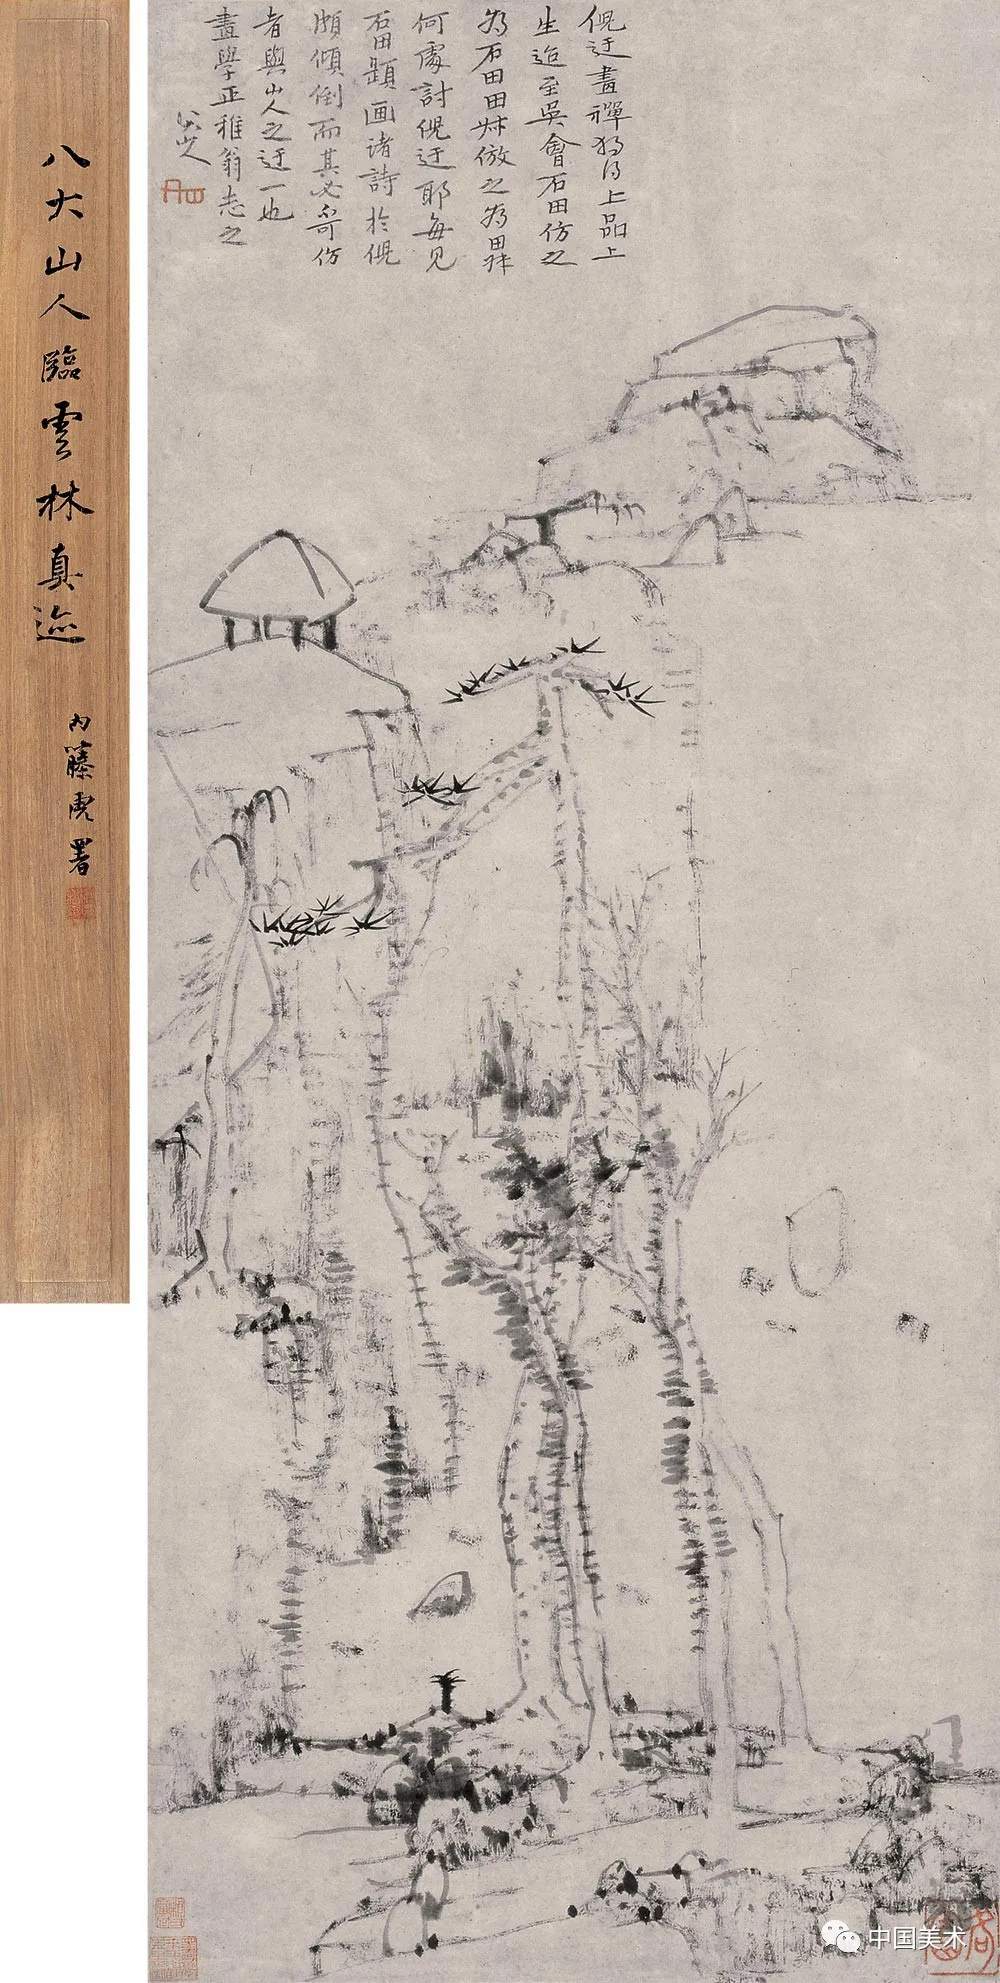 倪迂畫禪稱得上品上
生迨至吳會石田仿之
為石田田叔倣之為田叔
何處討倪迂耶每見
石田題画诸詩於倪
頗傾倒而其必哥仿
者與山人之迂一也
畫學正稚翁志之
八大山人
八大山人臨雲林真迹
内藤虎署
中国美术